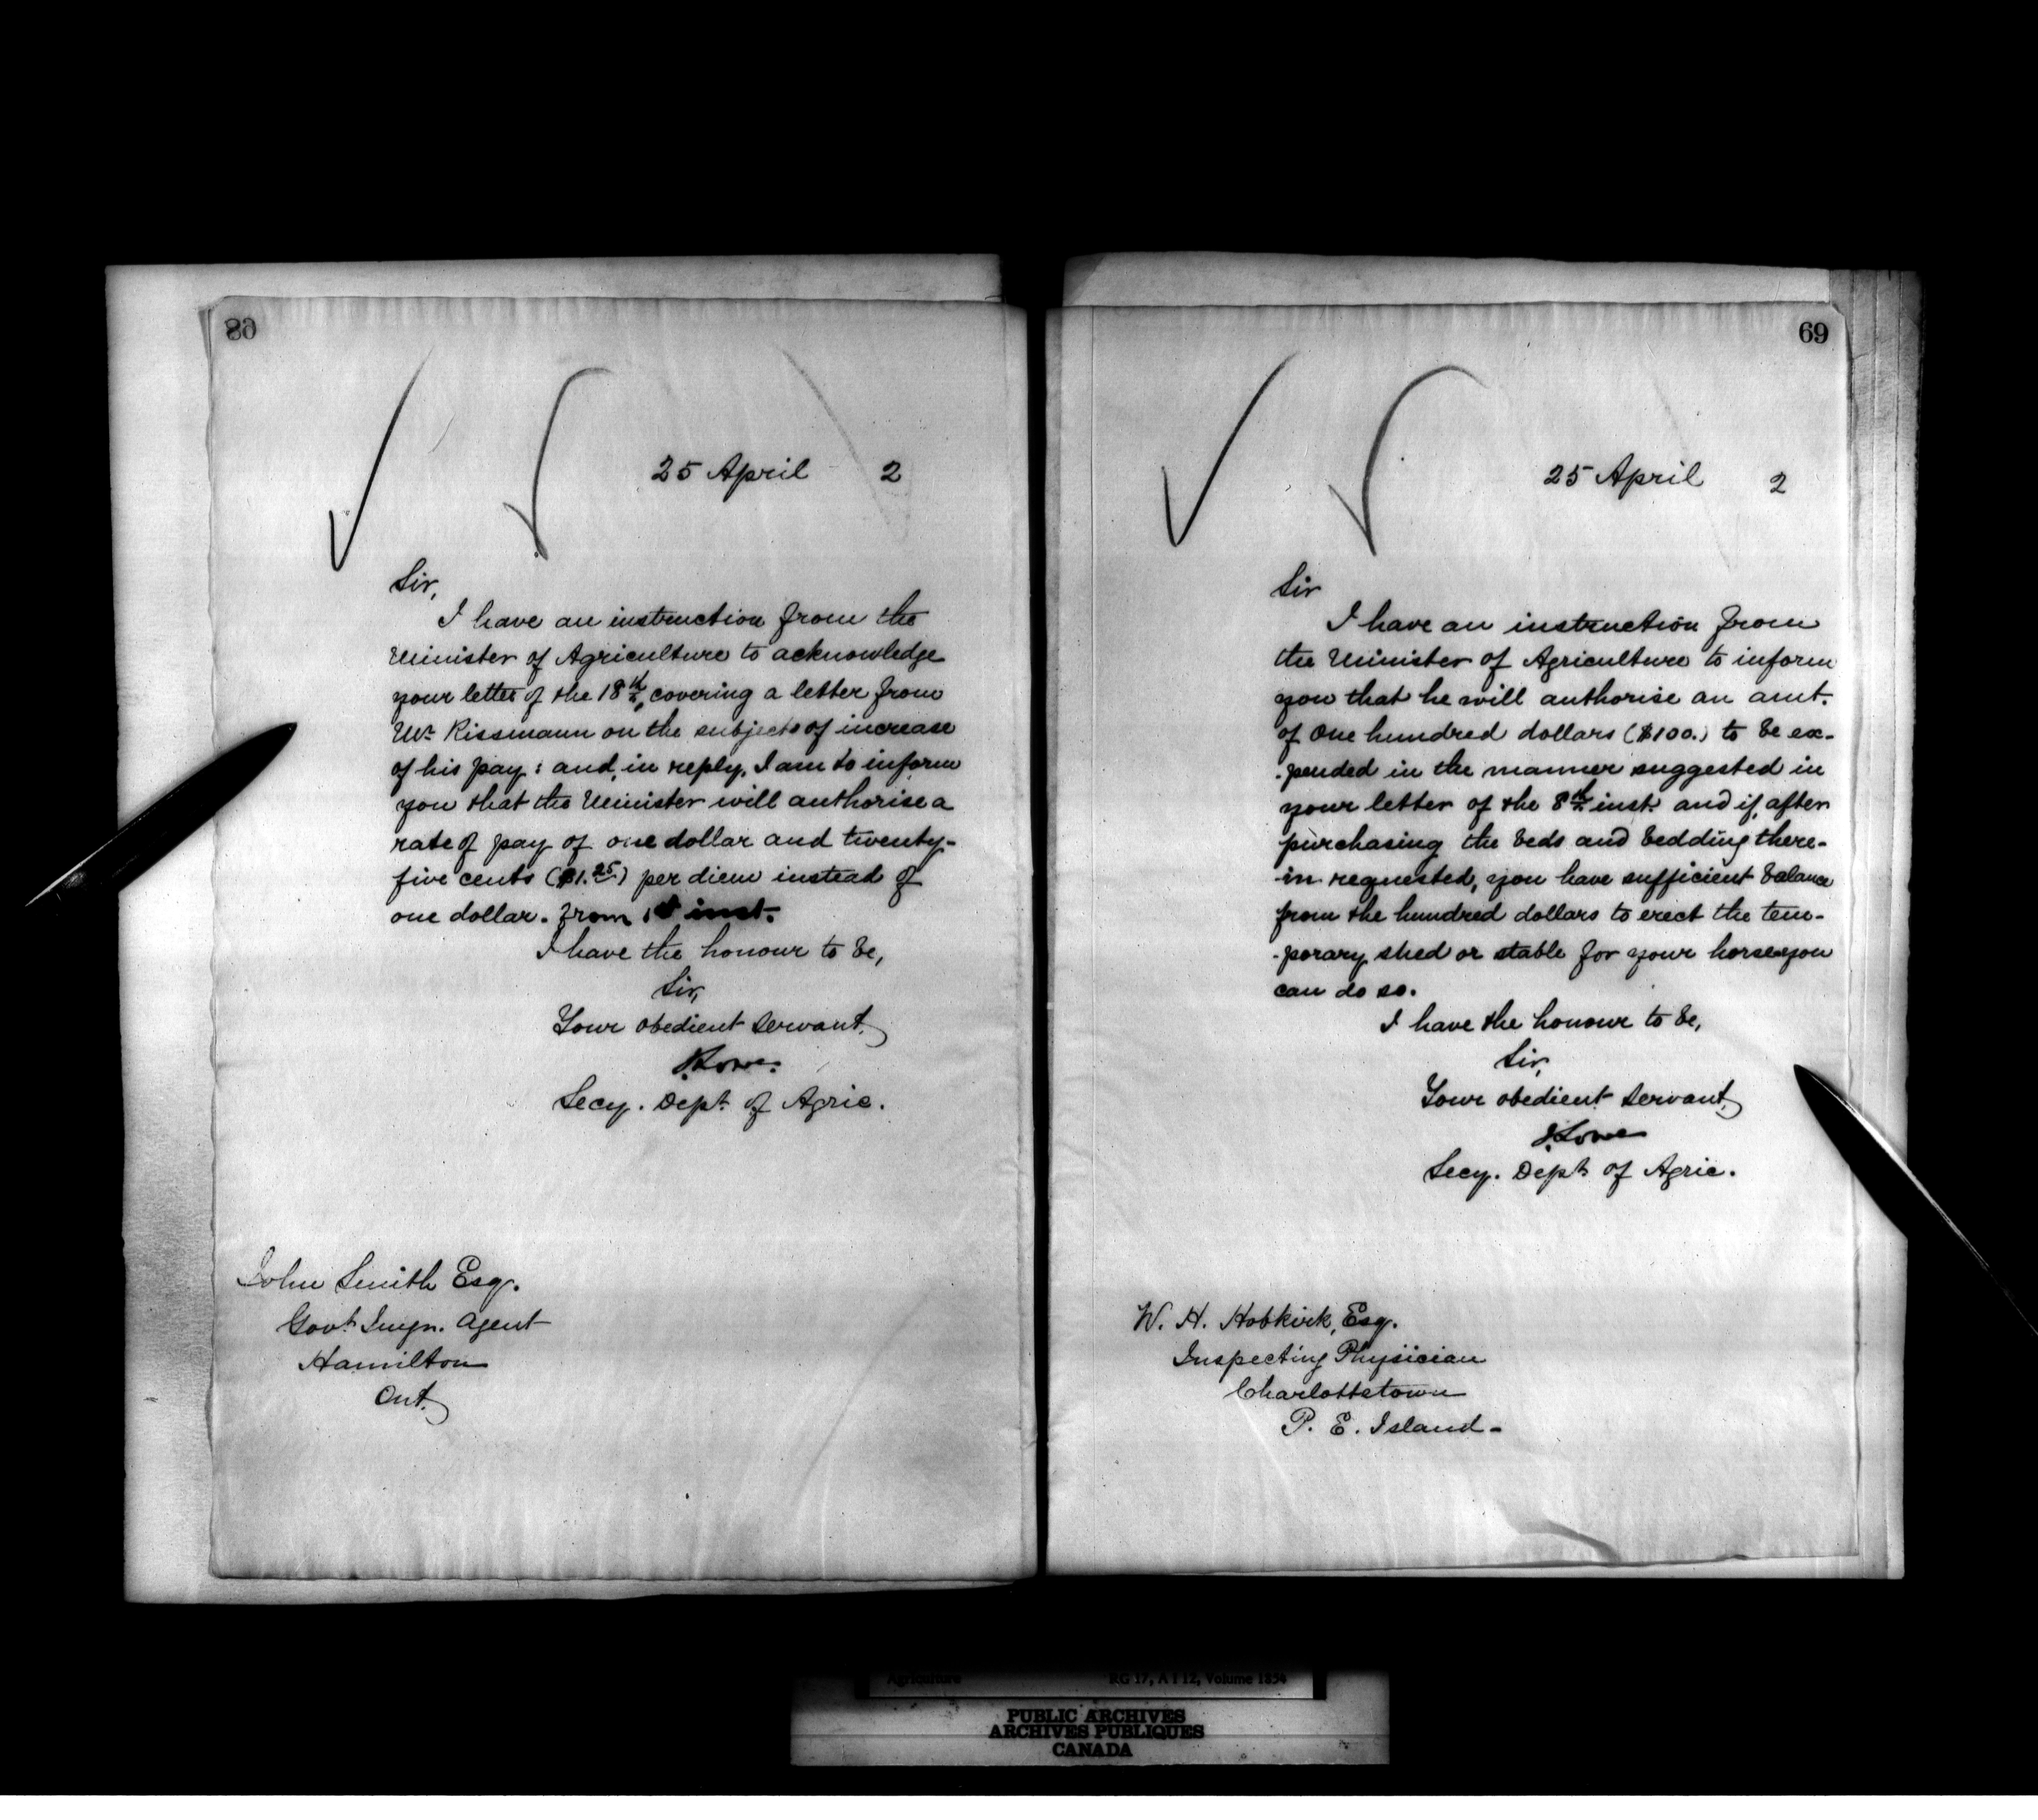 68
25 April 2
Sir,
I have an instruction from the
Minister of Agriculture to acknowledge
your letter of the 18th, covering a letter from
Mr Rissmann on the subjects of increase
of his pay: and, in reply, I am to inform
you that the Minister will authorise a
rate of pay of one dollar and twenty-
five cents ($1.25) per diem instead of
one dollar. from 1st inst.
I have the honour to be,
Sir,
Your obedient Servant,
J. Lowe.
Secy. Dept. of Agric.
John Smith Esq.
Govt. Imgn. Agent
Hamilton
Ont.
69
25 April 2
Sir
I have an instruction from
the Minister of Agriculture to inform
you that he will authorise an amt.
of One hundred dollars ($100.) to be ex-
-pended in the manner suggested in
your letter of the 8th inst. and if, after
purchasing the beds and bedding there-
-in requested, you have sufficient balance
from the hundred dollars to erect the tem-
-porary shed or stable for your horse you
can do so.
I have the honour to be,
Sir,
Your obedient Servant,
J. Lowe
Secy. Dept. of Agric.
W. H. Hobkirk, Esq.
Inspecting Physician
Charlottetown
P. E. Island-
Agriculture RG 17, A I 12, Volume 1654
PUBLIC ARCHIVES
ARCHIVES PUBLIQUES
CANADA